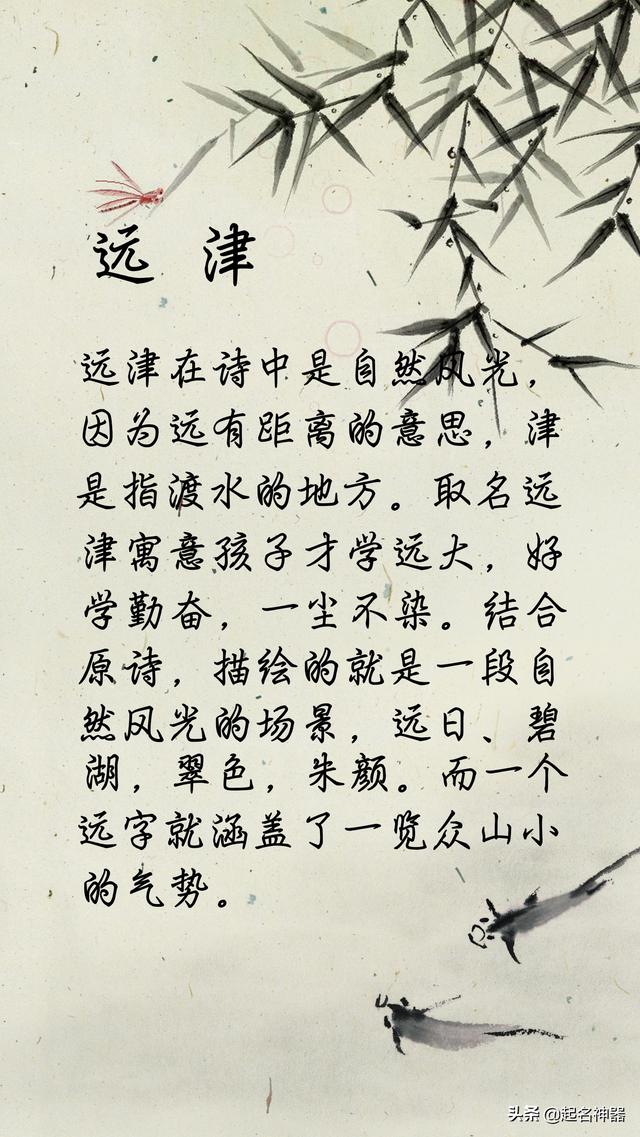 远 津
远津在诗中是自然风光，
因为远有距离的意思，津
是指渡水的地方。取名远
津寓意孩子才学远大，好
学勤奋，一尘不染。结合
原诗，描绘的就是一段自
然风光的场景，远日、碧
湖，翠色，朱颜。而一个
远字就涵盖了一览众山小
的气势。
头条 @起名神器